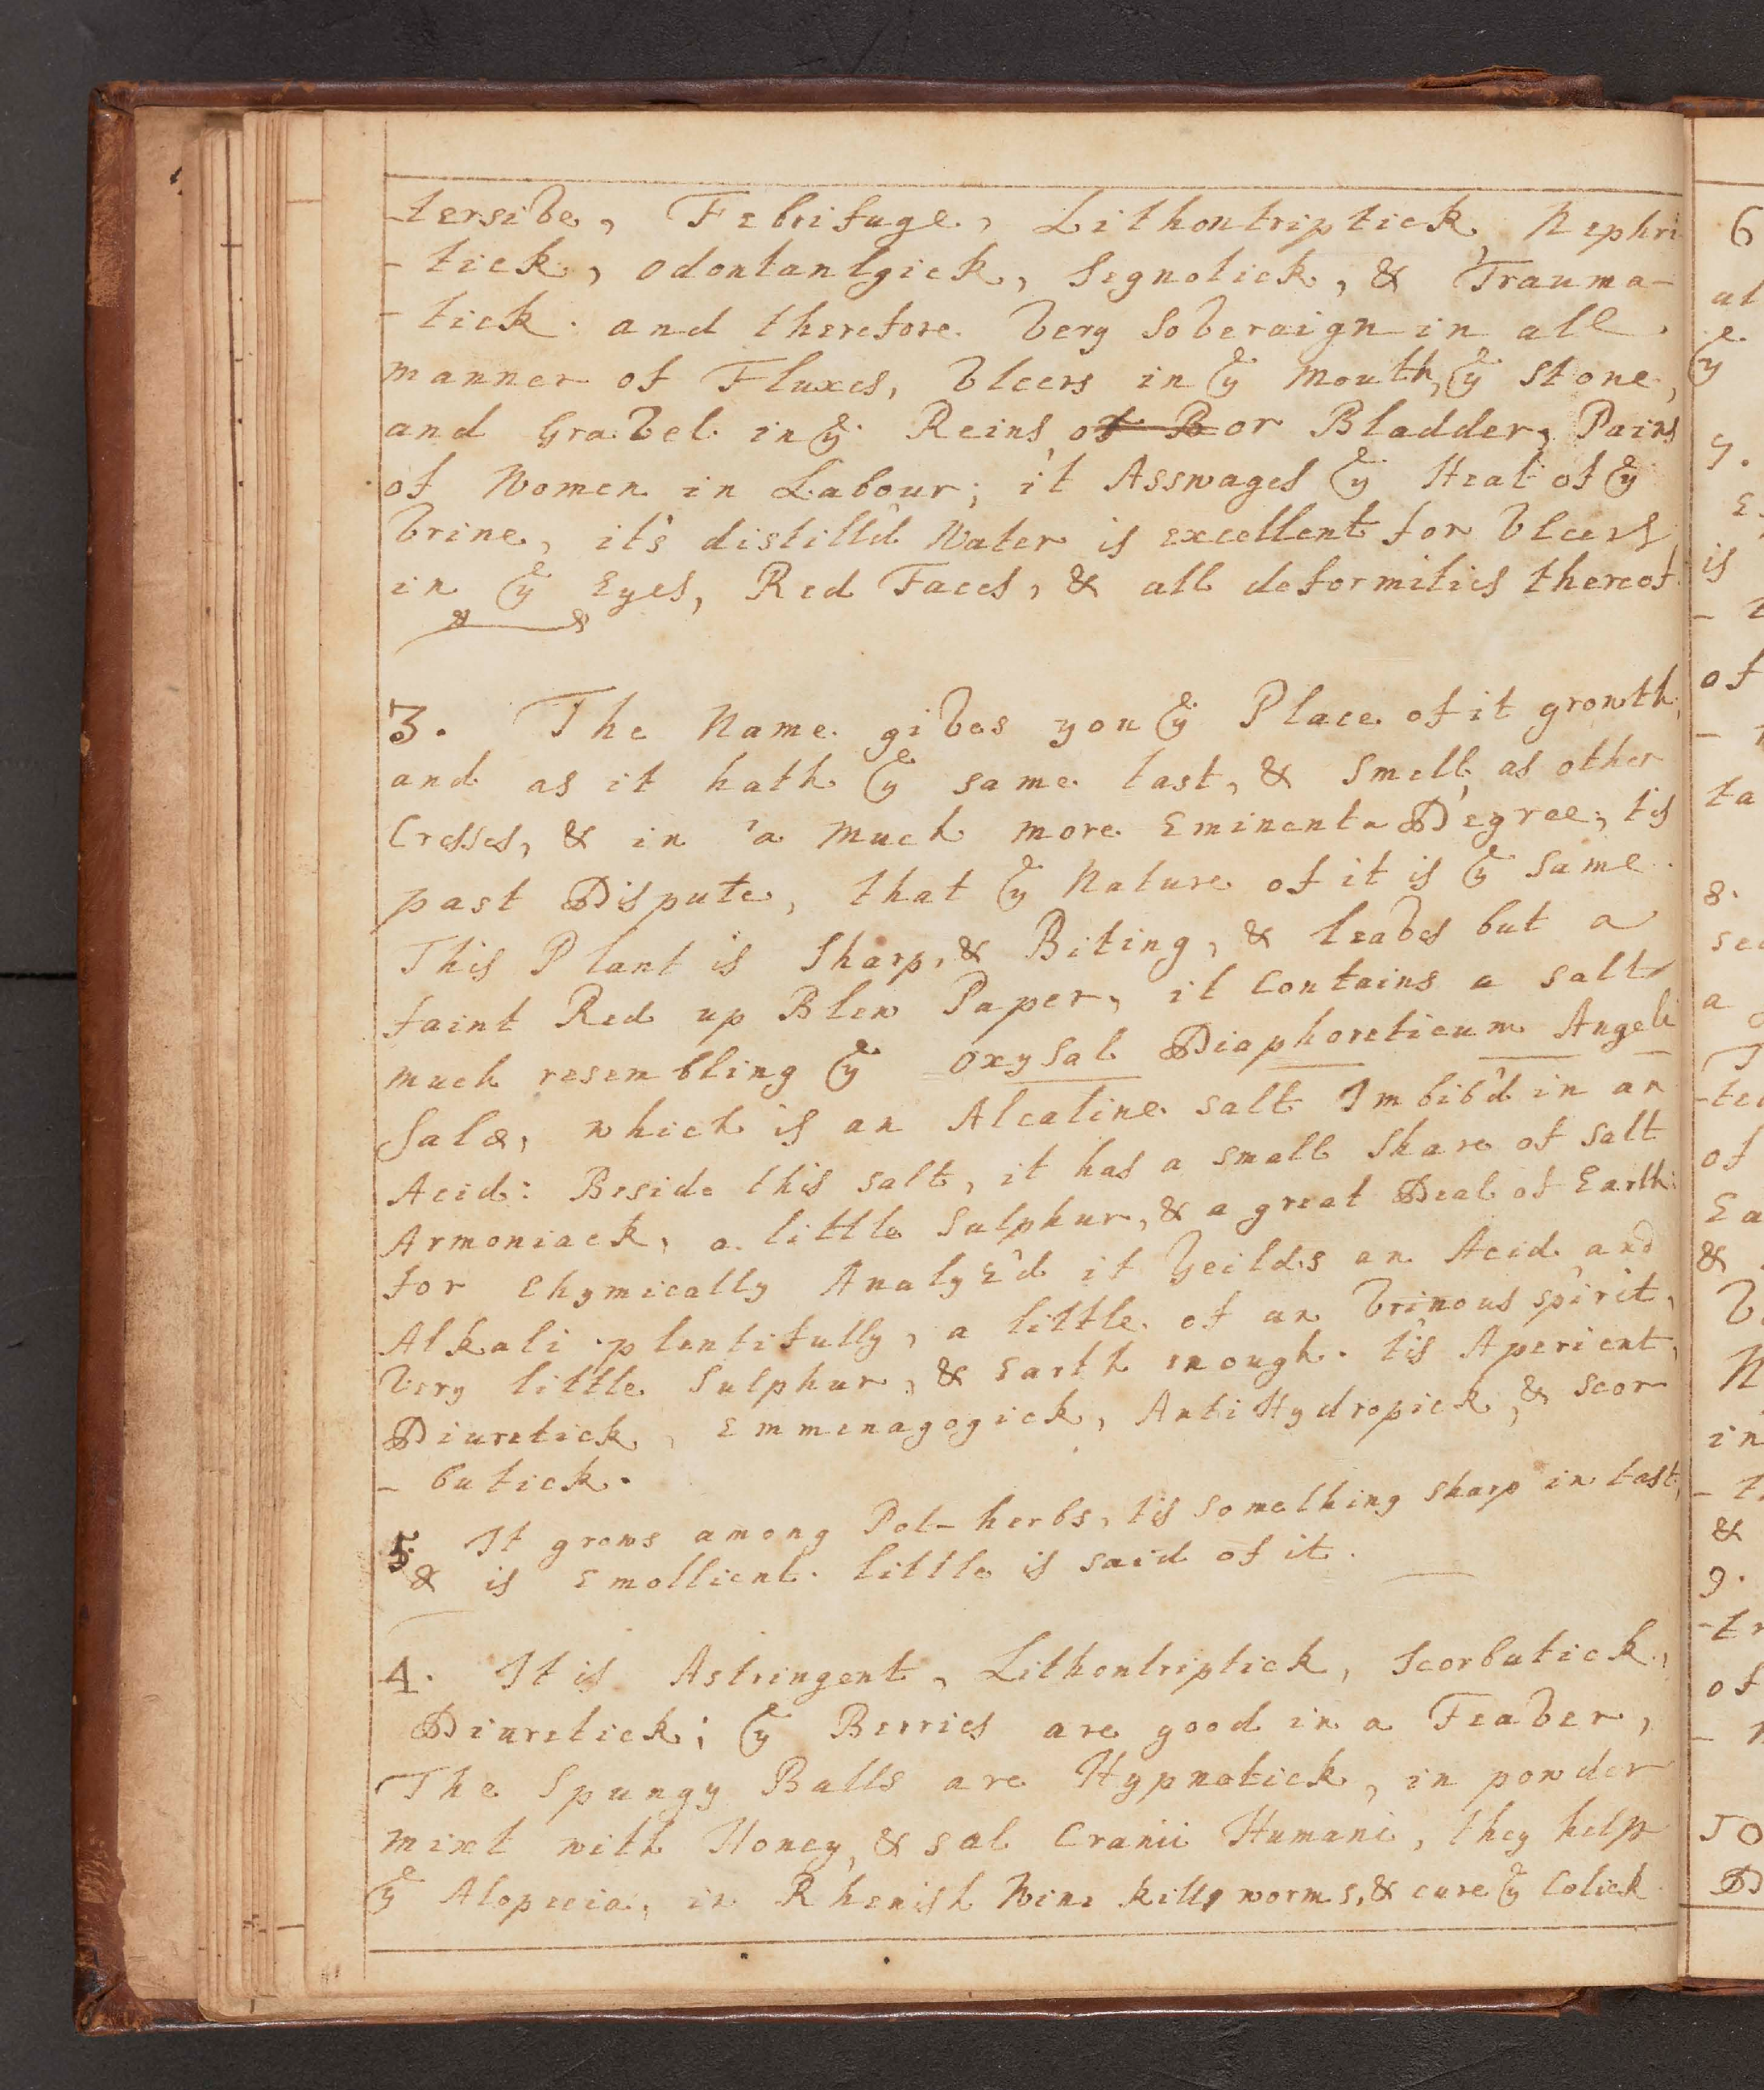 -tersive, Febrifuge, Lithontriptick, Nephri
-tick, odontantgick, Segnotick, & Trauma-
-tick. and therefore very Soveraign in all
manner of Fluxes, Vlcers in ye Mouth, ye Stone,
and Gravel in ye Reins of B or Bladder, Pains
of Women in Labour; it Asswages ye Heat of ye
Vrine, it's distill'd Water is excellent for Vlcers
in ye Eyes, Red Faces, & all deformities thereof
3. The Name gives you ye Place of it growth,
and as it hath ye same tast, & Smell, as other
Cresses, & in a much more Eminenta Degree, tis
past Dispute, that ye Nature of it is ye Same.
This Plant is Sharp, & Biting, & leaves but a
faint Red up Blew Paper, it Contains a salt
much resembling ye oxysal Diaphoreticum Angeli
Salæ, which is an Alcaline salt Imbib'd in an
Acid: Beside this salt, it has a small Share of salt
Armoniack, a little Sulphur, & a great Deal of Earth:
for Chymically Analyz'd it Yeilds an Acid and
Alkali plentifully, a little of an Vrinous spirit,
Very little Sulphur, & Earth enough. tis Aperient,
Diuretick, Emmenagogick, AntiHydropick, & Scor
-butick.
5. It grows among Pot-herbs, tis something sharp in tast,
& is Emollient. little is said of it.
4. It is Astringent, Lithontriptick, Scorbutick,
Diuretick; ye Berries are good in a Feaver,
The Spungy Balls are Hypnotick, in powder
mixt with Honey, & sal Cranii Humani, they help
ye Alopecia, in Rhenish Wine kills worms, & cure ye Colick
6
at
ye
7.
is
-t
of
ta
8.
a
of
Ea
&
N
in
&
9.
-tr
of
10
D